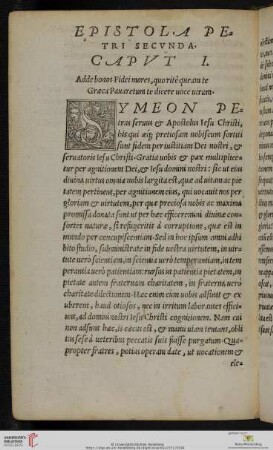 EPISTOLA PE-
TRI SECVNDA.
CAPVT I.
Adde bonos Fidei mores, quo ritè queant te
Græca Panaretum te dicere voce virum.
SYMEON PE-
trus seruus & Apostolus Iesu Christi,
his qui æquè pretiosam nobiscum sortiti
sunt fidem per iustitiam Dei nostri, &
seruatoris Iesu Christi. Gratia uobis & pax multiplice-
tur per agnitionem Dei, & Iesu domini nostri: sic ut eius
diuina uirtus omnia nobis largita est, quæ ad uitam ac pie
tatem pertinent, per agnitionem eius, qui uocauit nos per
gloriam & uirtutem, per quæ pretiosa nobis ac maxima
promissa donata sunt ut per hæc efficeremini diuinæ con-
sortes naturæ, si refugeritis à corruptione, quæ est in
mundo per concupiscentiam. Sed in hoc ipsum omni adhi-
bito studio, subministrate in fide uestra uirtutem, in uirtu
te uerò scientiam, in scientia uerò temperantiam, in tem
perantia uerò patientiam: rursus in patientia pietatem, in
pietate autem fraternam charitatem, in fraterna uerò
charitate dilectionem. Hæc enim cum uobis adsint & ex
uberent, haud otiosos, nec in irritum laborantes effici
unt, ad domini nostri Iesu Christi cognitionem. Nam cui
non adsunt hæc, is cæcus est, & manu uiam tentans, obli
tus sese à ueteribus peccatis suis fuisse purgatum. Qua-
propter fratres, potius operam date, ut uocationem &
ele-